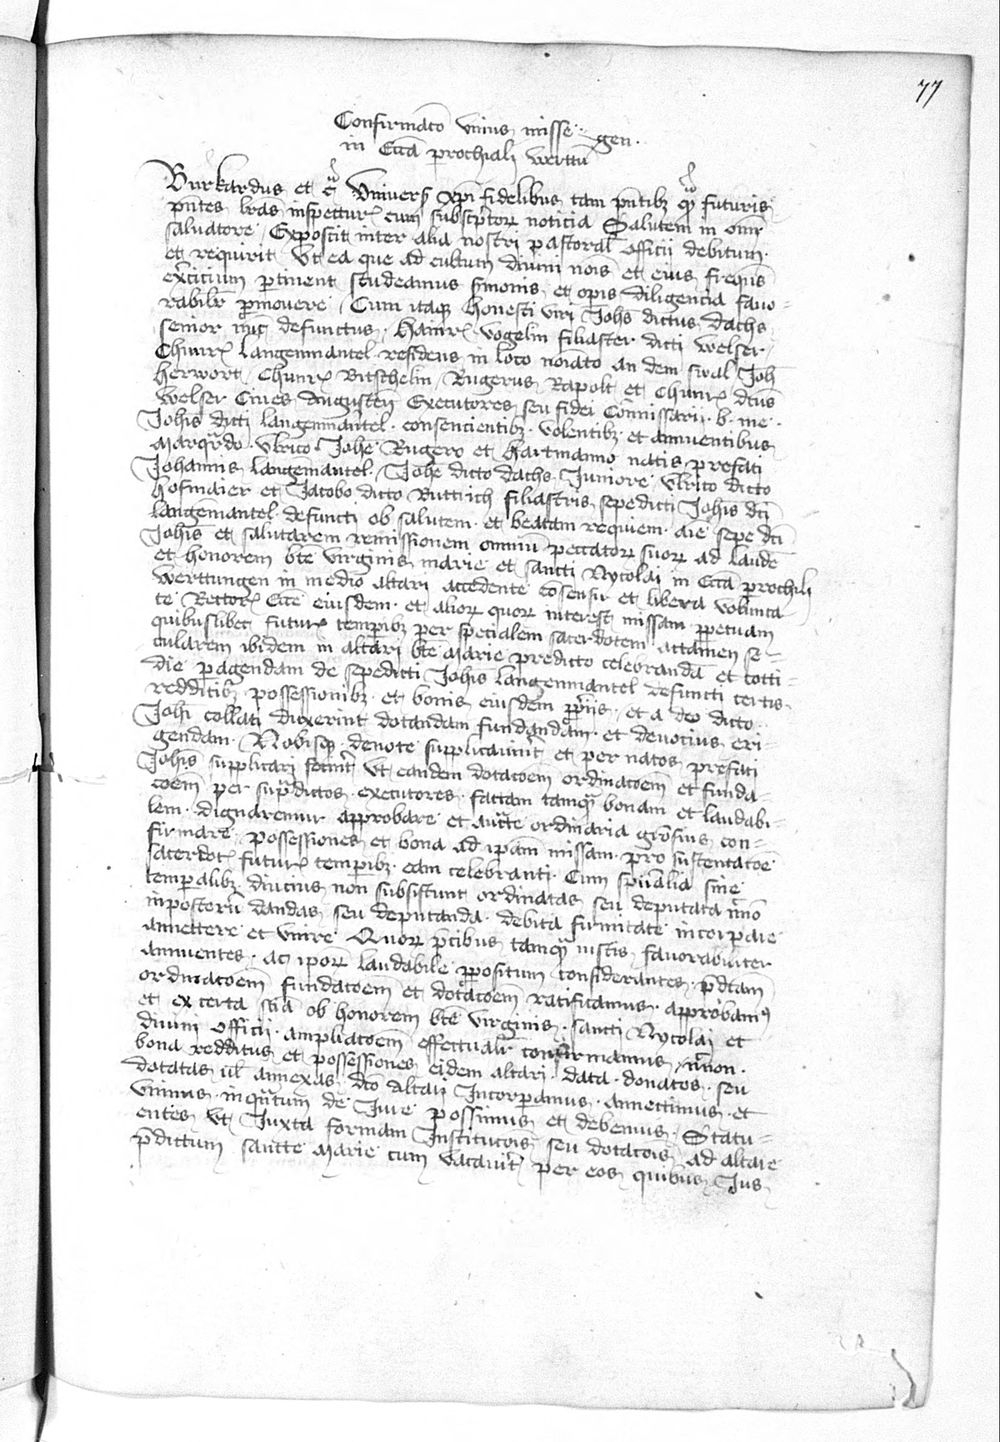 77
Confirmat̄o vnius misse
in Ecc̄a p̱rochiali werttūgen.
Burkardus et c̄ Vniuers̉ xp̄i fidelibus tam pn̄tibꝫ qͣ futuris
pn̄tes lr̄as inspectur̉ cum subscp̱torꝝ noticia Salutem in omī
saluatore Exposcit inter alia nostri pastoral̉ officii debitum
et requirit Vt ea que ad cultum diuini nōis et eius freqn̄s
ex̉citium p̱tinent studeamus sermonis et op̱is diligencia fauo-
rabilr̄ p̱mouere Cum itaqꝫ honesti viri Joh̄s dictus Dachs
senior nūc defunctus Hainr̉ vogelin filiaster dicti welser
Chunr̉ Langenmantel residens in loco noīato an dem Joh̄
herwort Chunr̉ Bitschelin Rugerus Rapolt et Chunr̉ dc̄us
welser Ciues Augusten̄ Executores seu fidei Comissarii b. me.
Joh̄is dicti langenmn̄tel consencientibꝫ volentibꝫ et annuentibus
Marqͣrdo vlrico Joh̄e Rugero et hartmanno natis prefati
Johannis Langēmantel Joh̄e dicto Dachs Juniore vlrico dicto
hofmaier et Jacobo dicto Buttrich filiastris sepedicti Joh̄is dc̄i
Langēmantel defuncti ob salutem et beatam requiem aīe sepe dc̄i
Joh̄is et salutarem remissionem omniū peccatorꝝ suorꝝ ad laudē
et honorem bt̄e virginis marie et sancti Nycolai in Ecc̄a p̱rochili
werttungen in medio altari accedente cōsensu et libera volunta
te Rector̉ Ecc̄e eiusdem et aliorꝝ quorꝝ interest missam p̱petuam
quibuslibet futur̉ temp̱ibꝫ per specialem sacerdotem actamen se-
cularem ibidem in altari bt̄e Marie predicto celebrandā et cotti-
die p̱agendam de sepedicti Joh̄is Langenmantel defuncti certis
redditibꝫ possessionibꝫ et bonis eiusdem pp̱riis et a deo dicto
Joh̄i collati duxerint dotandam fundandam et deuocius eri-
gendam Nobisqꝫ deuote supplicauint̄ et per natos prefati
Joh̄is supplicari fecint̄ Vt eandem dotacoēm ordinacoēm et funda-
coēm per supͣdictos executores factam tamqͣ bonam et laudabi-
lem dignaremur approbare et auct̄te ordinaria grōsius con-
firmare possessiones et bona ad ip̄am missam pro sustentacoē
sacerdot̉ futur̉ temp̱ibꝫ eam celebranti Cum spūalia sine
temp̱alibꝫ diucius non subsistunt ordinatas seu deputata īmo
inposterū dandas seu deputanda debita firmitate incorp̱are
annettere et vnire Quorꝝ p̄cibus tamqͣ iustis fauorabiliter
annuentes ac ip̄orꝝ laudabile p̱positum considerantes p̄dc̄am
ordinacoēm fundacoēm et dotacoēm ratificamus approbam᷒
et ex certa scīa ob honorem bt̄e virginis sancti Nycolai et
diuini officii ampliacoēm effectualr̄ confirmamus
bona redditus et possessiones eidem altari data donatos seu
dotatas ul̄ annexas dc̄o altari Incorp̱amus annettimus et
vnimus inqͣntum de Jure possumus et debemus Statu-
entes Vt Juxta formam Institucōis seu dotacōis ad altare
p̄dictum sancte Marie cum vacauit̄ per eos quibus Jus